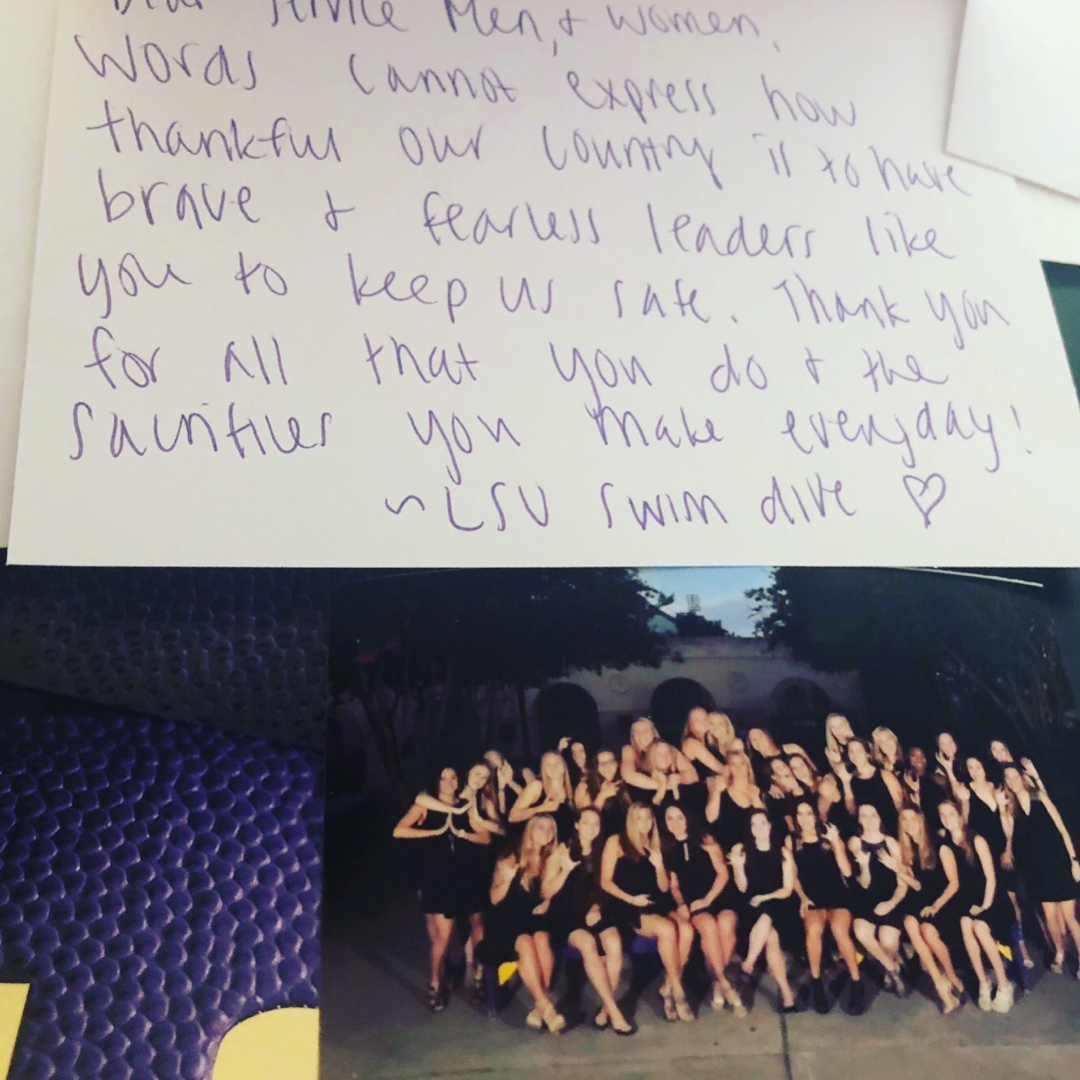 Dear Service Men, & Women,
Words cannot express how
thankful our country is to have
brave & fearless leaders like
you to keep us safe. Thank you
for all that you do & the
sacrifices you make everyday!
~ LSU Swim dive ♡